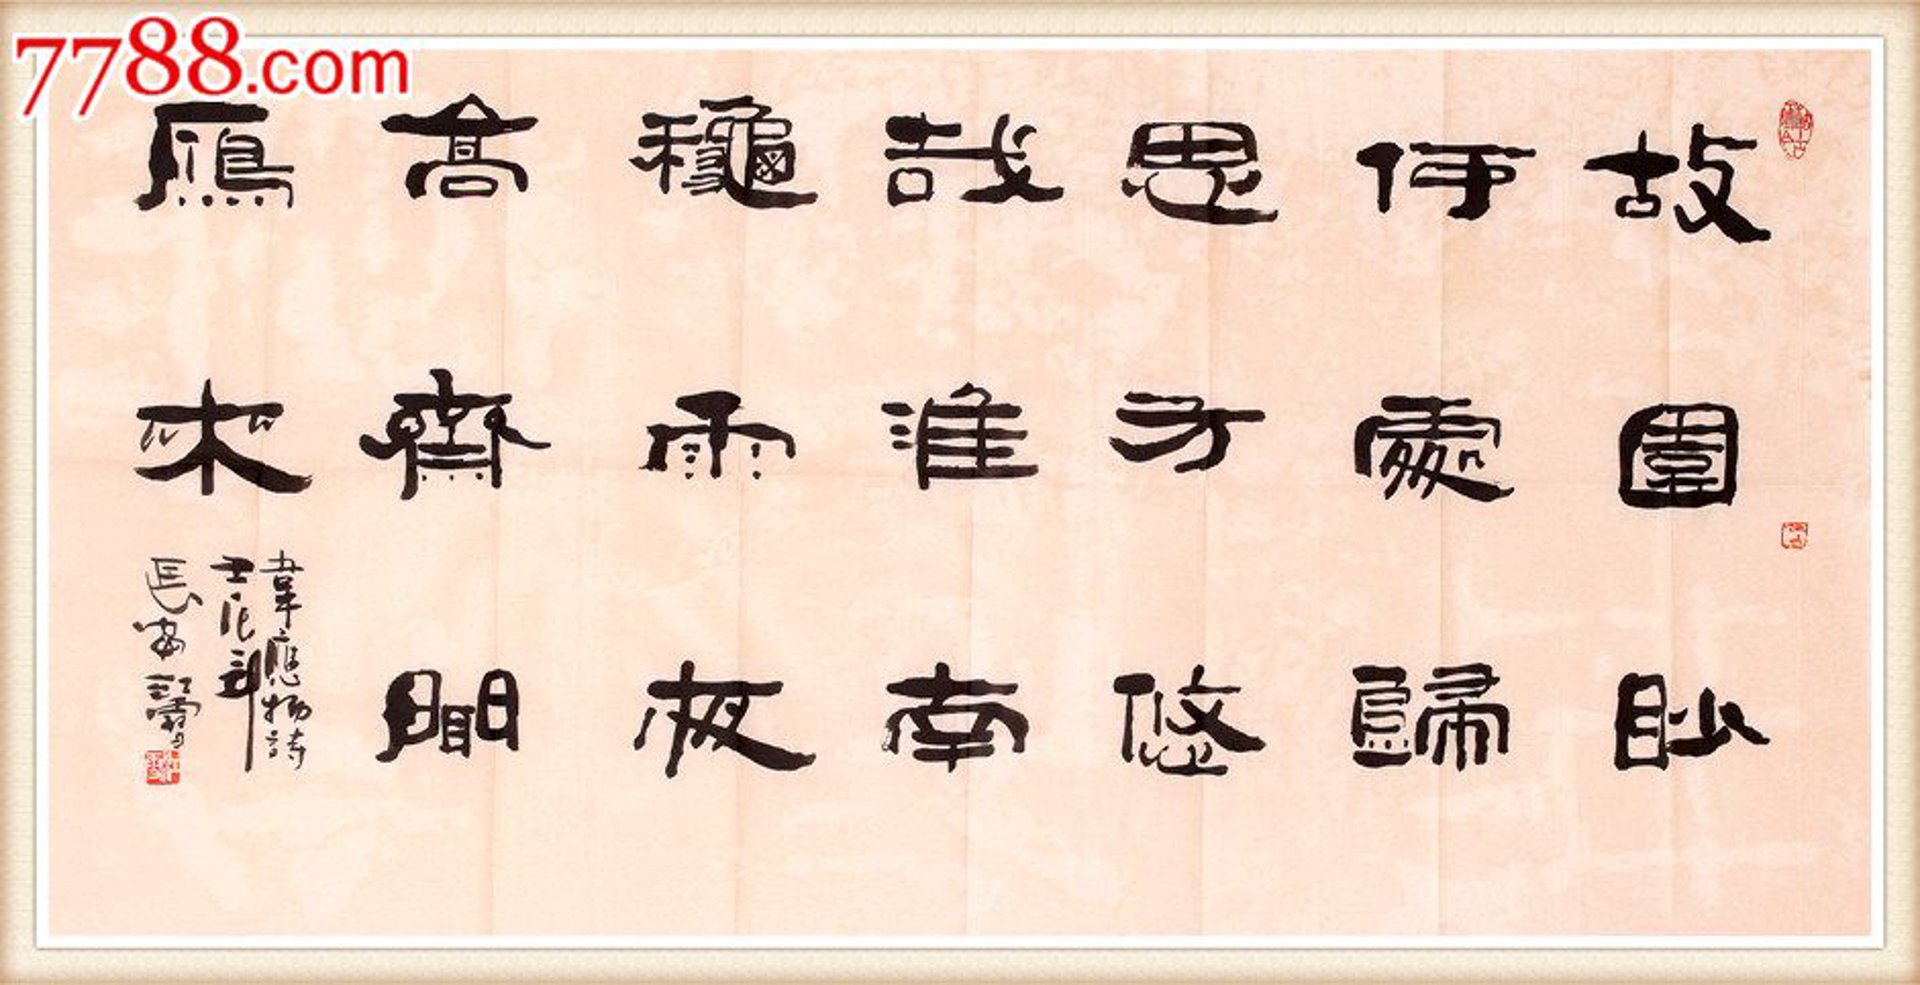 7788.com
故園眇
何處歸
思方悠
哉淮南
龝雨夜
高齋聞
鴈來
韋應物詩
長安